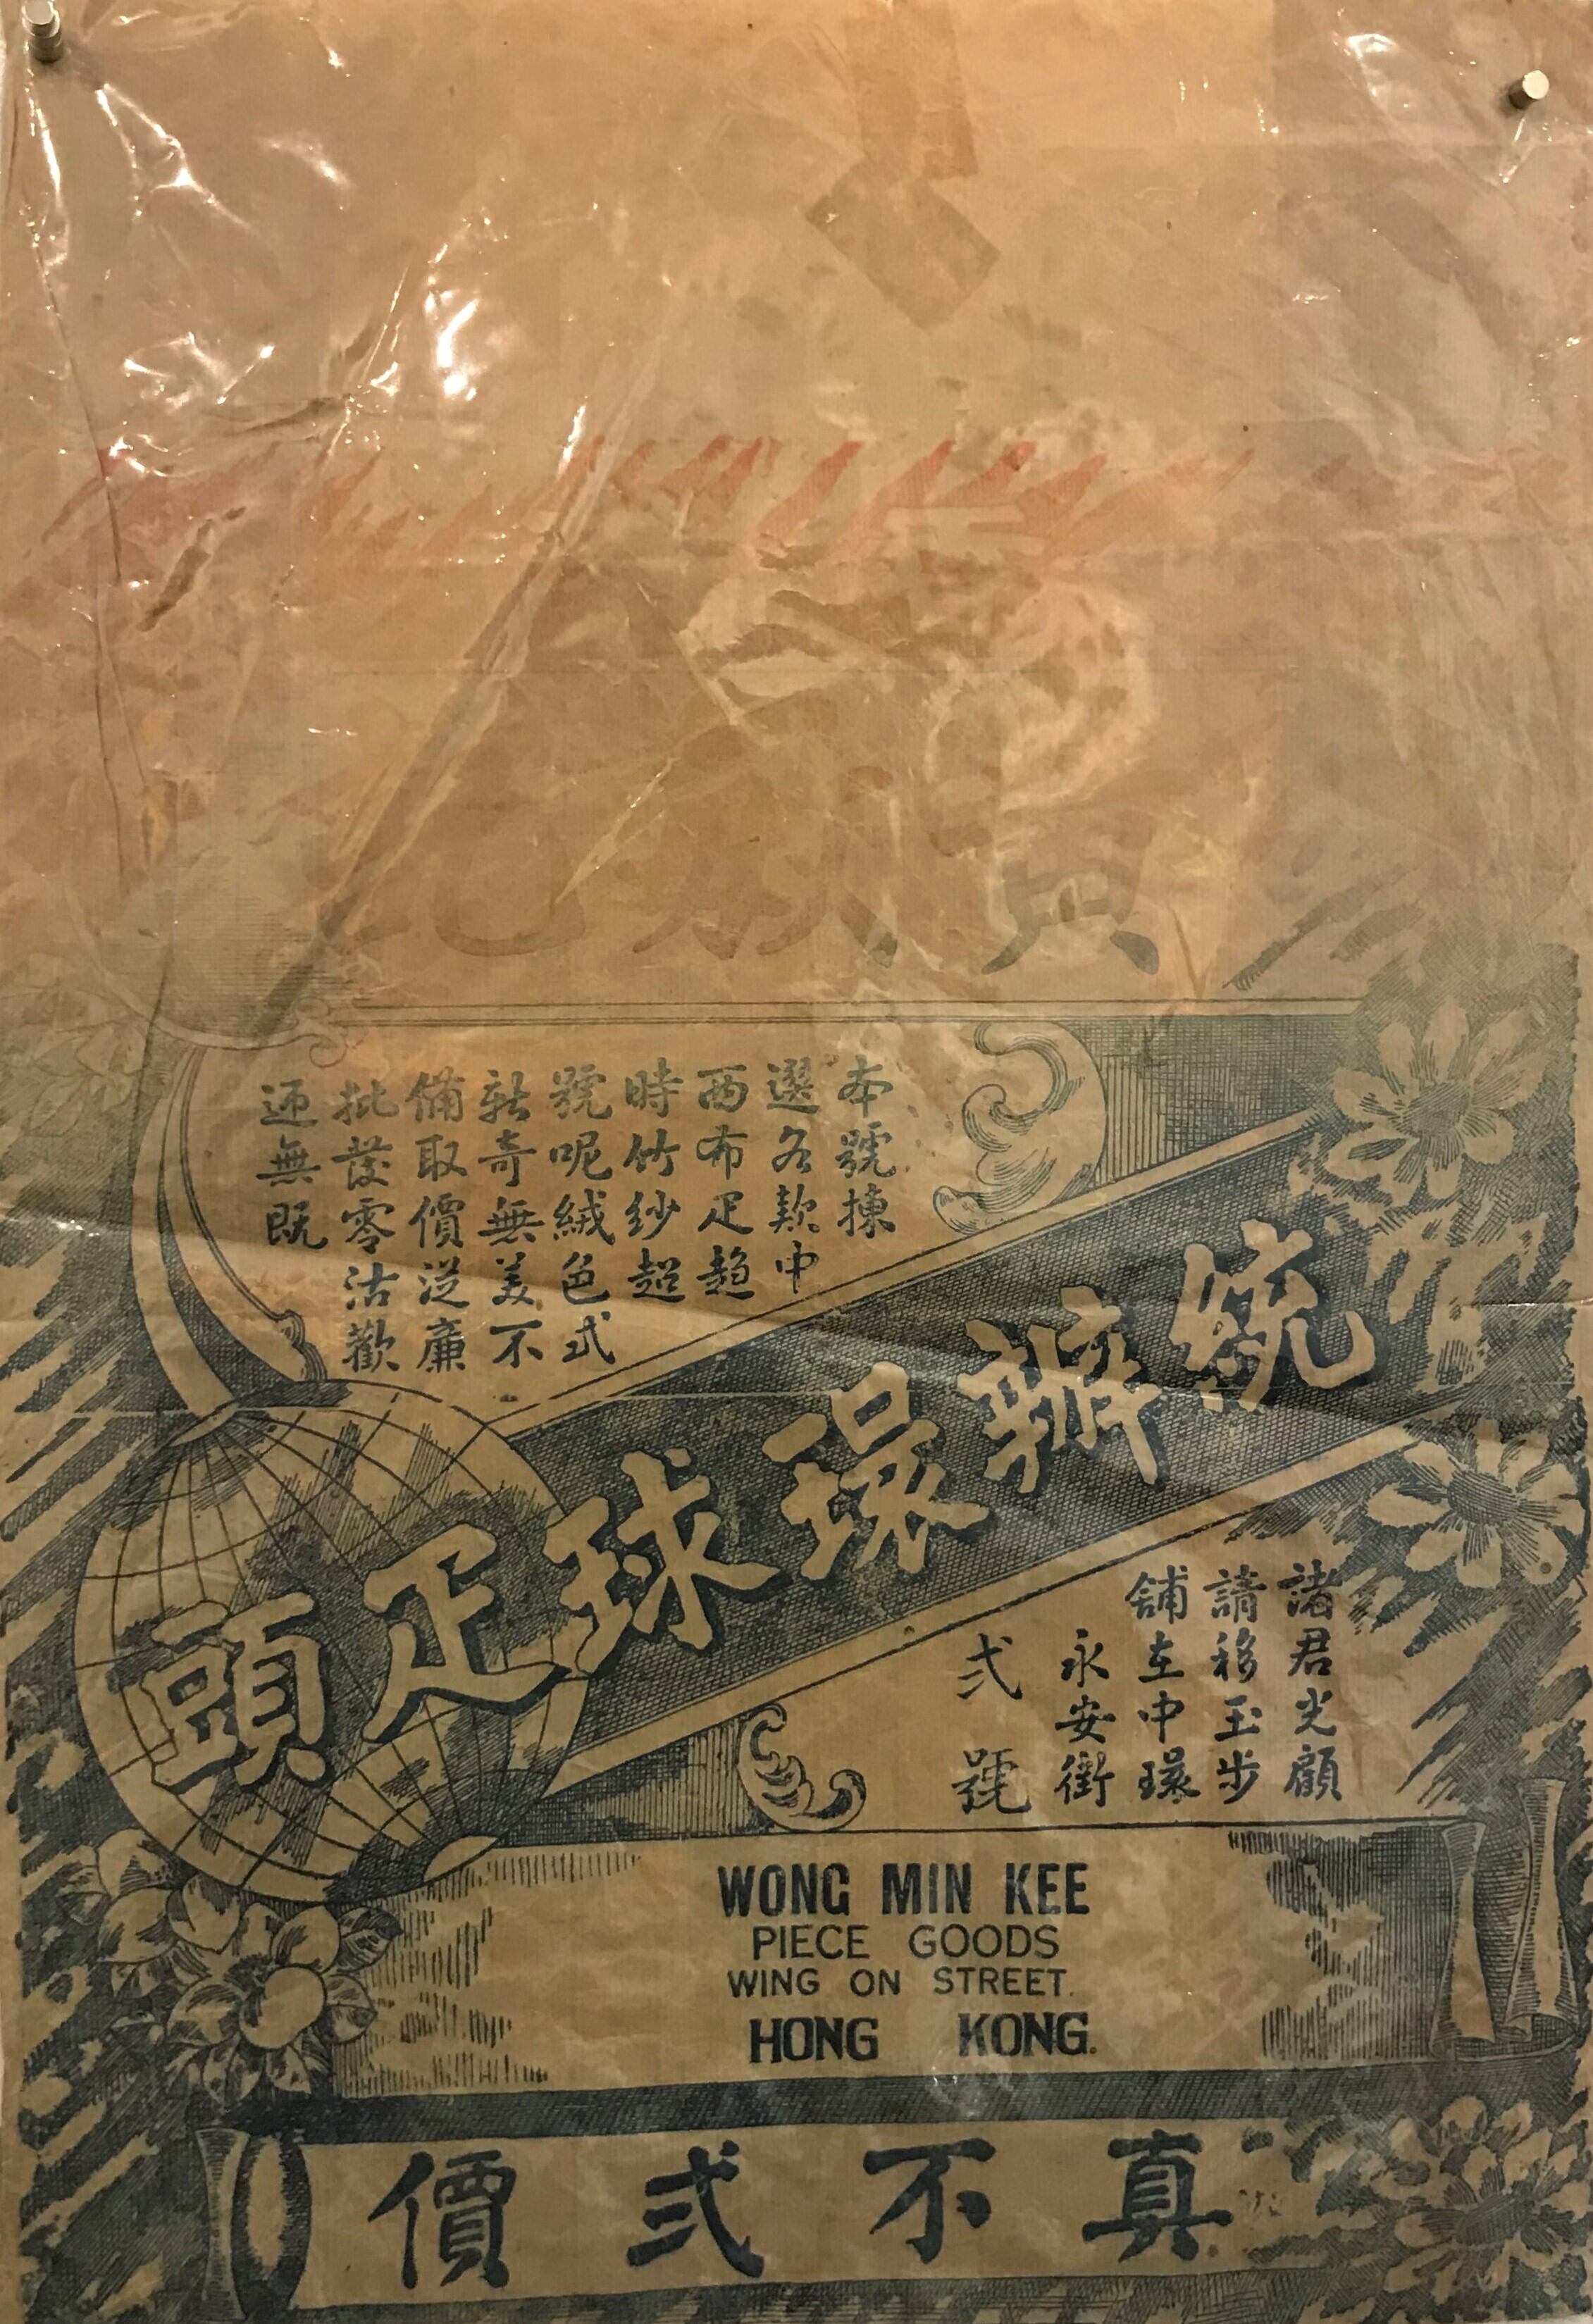 本號揀
選各款中
西布疋趨
時竹紗超
號呢絨色式
新奇無美不
備取價從廉
批發零沽歡
迎無既
統辦環球疋頭
諸君光顧
請移玉步
舖在中環
永安街
弍號
WONG MIN KEE
PIECE GOODS
WING ON STREET.
HONG KONG.
真不弍價